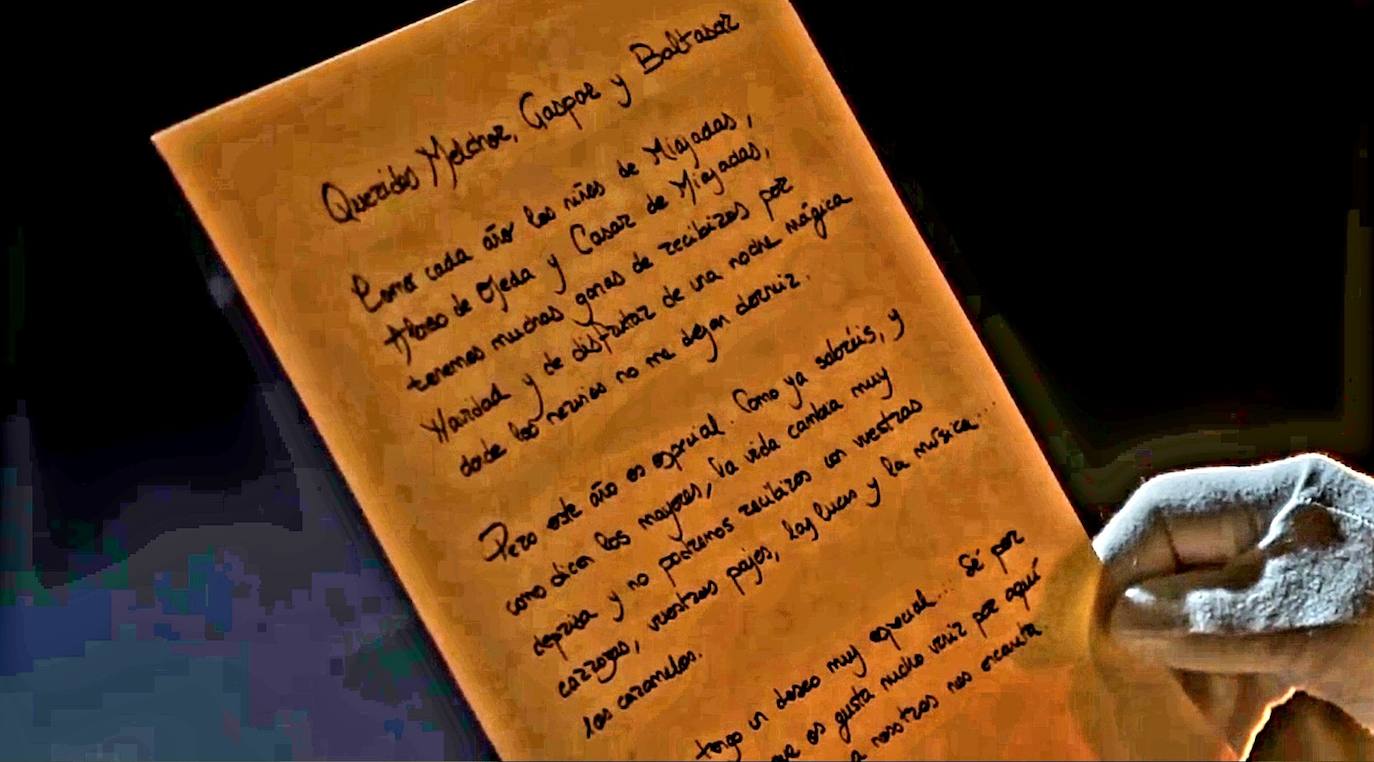 Queridos Melchor, Gaspar y Baltasar
Como cada año los niños de Miajadas,
Alonso de Ojeda y Casar de Miajadas,
tenemos muchas ganas de recibiros por
Navidad y de disfrutar de una noche mágica
donde los nervios no me dejan dormir.
Pero este año es especial. Como ya sabréis, y
como dicen los mayores, la vida cambia muy
deprisa y no podremos recibiros con vuestras
carrozas, vuestros pajes, las luces y la música...
los caramelos.
tengo un deseo muy especial... Sé por
que os gusta mucho venir por aquí
a nosotros nos encanta